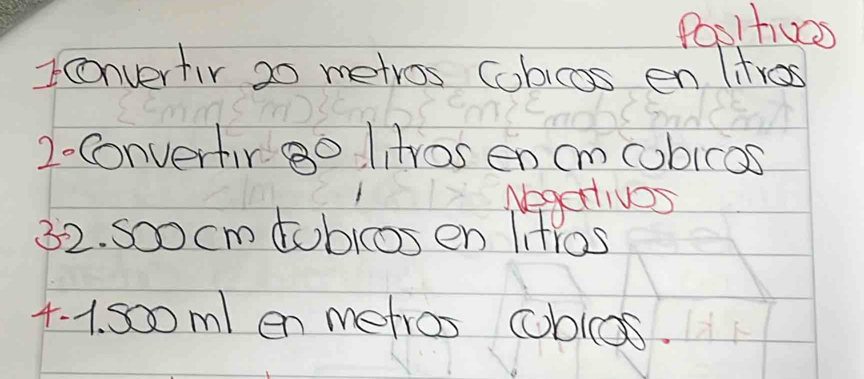 Positivos
1-Convertir 20 metros cobicos en litros
2-Convertir 80 litros en cm cobicos
Negativos
3-2.500 cm cubicos en litros
4-1.500 ml en metros cobicos.